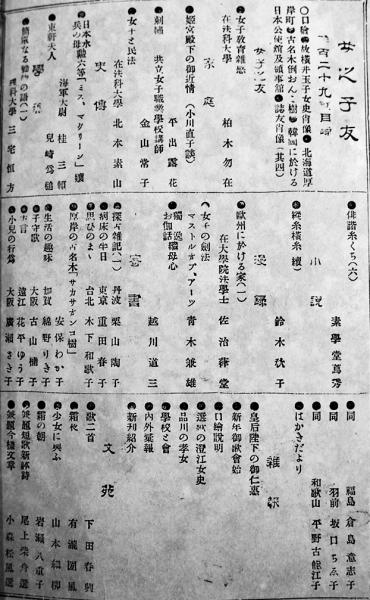 女子之友
二百二十九號目録
◎口繪●故横井玉子女史肖像●北海道厚
岸町●古名木倒おんこ樹●韓國に於ける
日本公使館及領事館●誌友肖像(其四)
女子之友
●女子敎育雜感
在法科大學 柏木勿在
家庭
●姫宮殿下の御近情(小川直子談)
平出露花
●刺繡 共立女子職業學校講師
金山常子
●女十と民法
在法科大學 北本素山
史傳
●日本水
兵の母勳六等「ミス、マクリーン」續
海軍大尉 桂三恒
●東軒夫人 兒崎爲槌
學藝
●簡單なる
理科大學 三宅恒方
●俳諧糸ぐち(六)
素學堂萬秀
小説
●經糸橫糸(續)
鈴木秋子
漫録
●歐州に於ける家(一)
在大學院法學士 佐治
●女子の劍法
マストルオブアーツ 青木兼雄
●獨逸孃母心
お伽話 越川道三
寄書
●探古雜記(一) 丹波 栗山陶子
●病床の半日 東京 重田春子
●思ひのまゝ 台北 木下和歌子
●厚岸の古名木「サカサオンコ樹」
安保わか子
●生活の趣味 加賀 綿野りき子
●子守歌 大阪 古山補子
●方言 遠江 花平ゆう子
●小兒の行爲 大阪 廣瀬まき子
●同 福島 倉島意志子
●同 羽前 坂口ちゑ子
●同 和歌山 平野古能江子
●はがきだより
雜報
●皇后陛下の御仁惠
●新年御歌會始
●口繪説明
●逝矣の澄江女史
●品川の孝女
●學校と會
●内外彙報
●新刊紹介
文苑
●歌二首 下田春興
●霜夜 有瀧園風
●少女に與ふ 山本細柳
●霜の朝 岩瀬八重子
●兼題短歌新体詩 尾上柴舟選
●兼題今樣文章 小森松風選